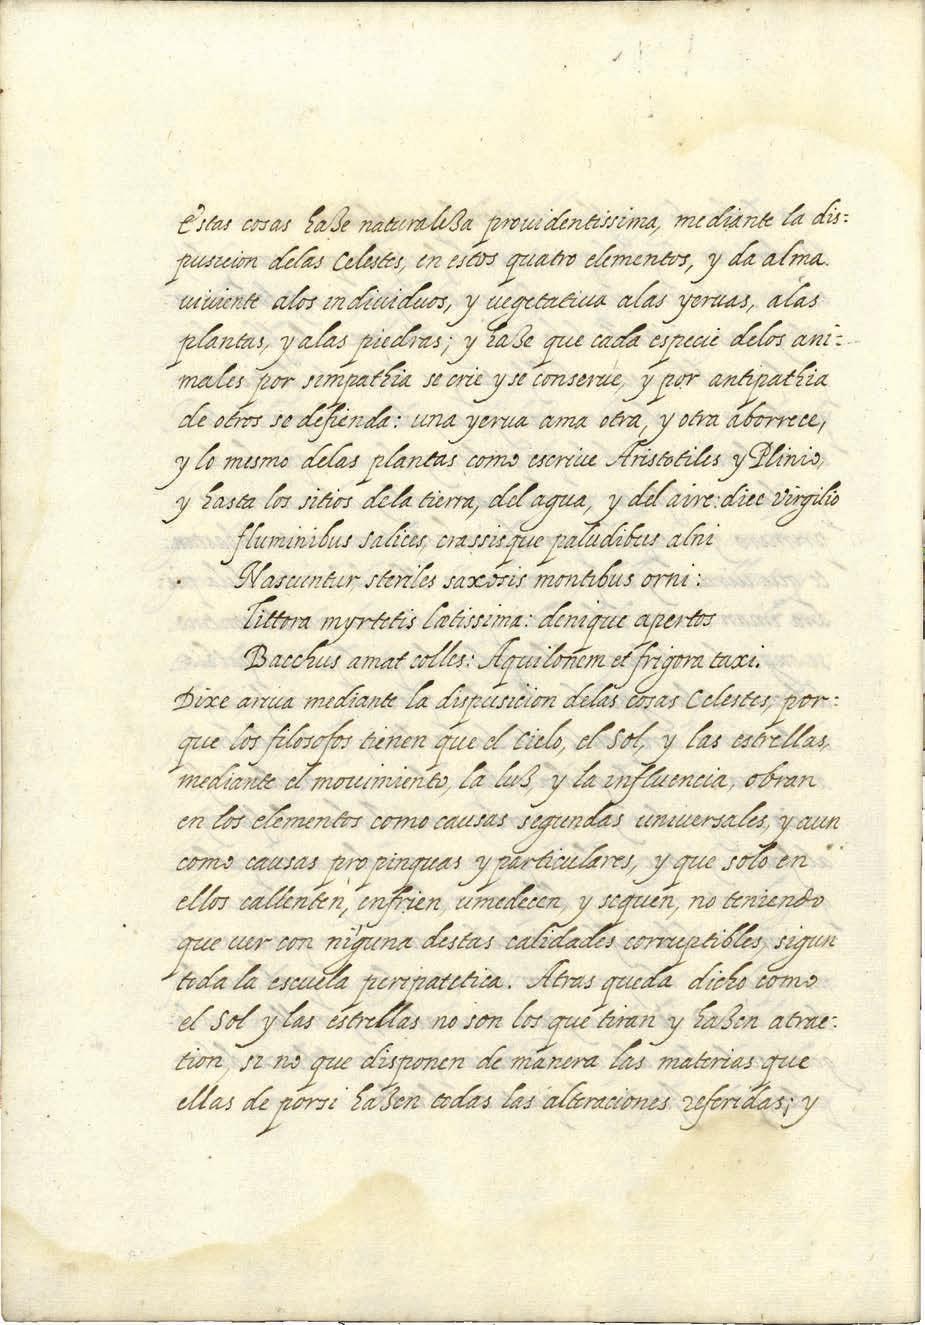 Estas cosas haze naturaleza prouidentissima, mediante la dis=
pusicion delas Celestes, en estos quatro elementos, y da alma
viuiente alos indiuiduos, y vegetatiua alas yeruas, alas
plantas, y alas piedras; y haze que cada especie delos ani=
males por simpathia se crie y se conserue, y por antipathia
de otros se defienda: una yerua ama otra, y otra aborrece,
y lo mesmo delas plantas como escriue Aristotiles y Plinio,
y hasta los sitios dela tierra, del agua, y del aire: dice Virgilio
Fluminibus salices, crassisque paludibus alni
Nascuntur, steriles saxosis montibus orni:
Littora myrtetis lætissima: denique apertos
Bacchus amat colles: Aquilonem et frigora taxi.
Dixe arriua mediante la dispusicion delas cosas Celestes, por=
que los filosofos tienen que el Cielo, el Sol, y las estrellas,
mediante el mouimiento, la luz, y la influencia, obran
en los elementos como causas segundas uniuersales, y aun
como causas propinquas y particulares, y que solo en
ellos callenten, enfrien, umedecen, y sequen, no teniendo
que uer con niguna destas calidades corruptibles, sigun
toda la escuela peripatetica. Atras queda dicho como
el Sol y las estrellas no son los que tiran y hazen atrac=
tion, si no que disponen de manera las materias que
ellas de porsi hazen todas las alteraciones referidas; y